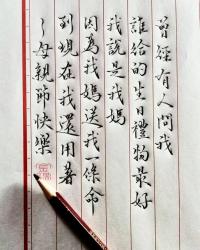 曾經有人問我
誰給的生日禮物最好
我說是我媽
因為我媽送我一條命
到現在我還用著
～母親節快樂